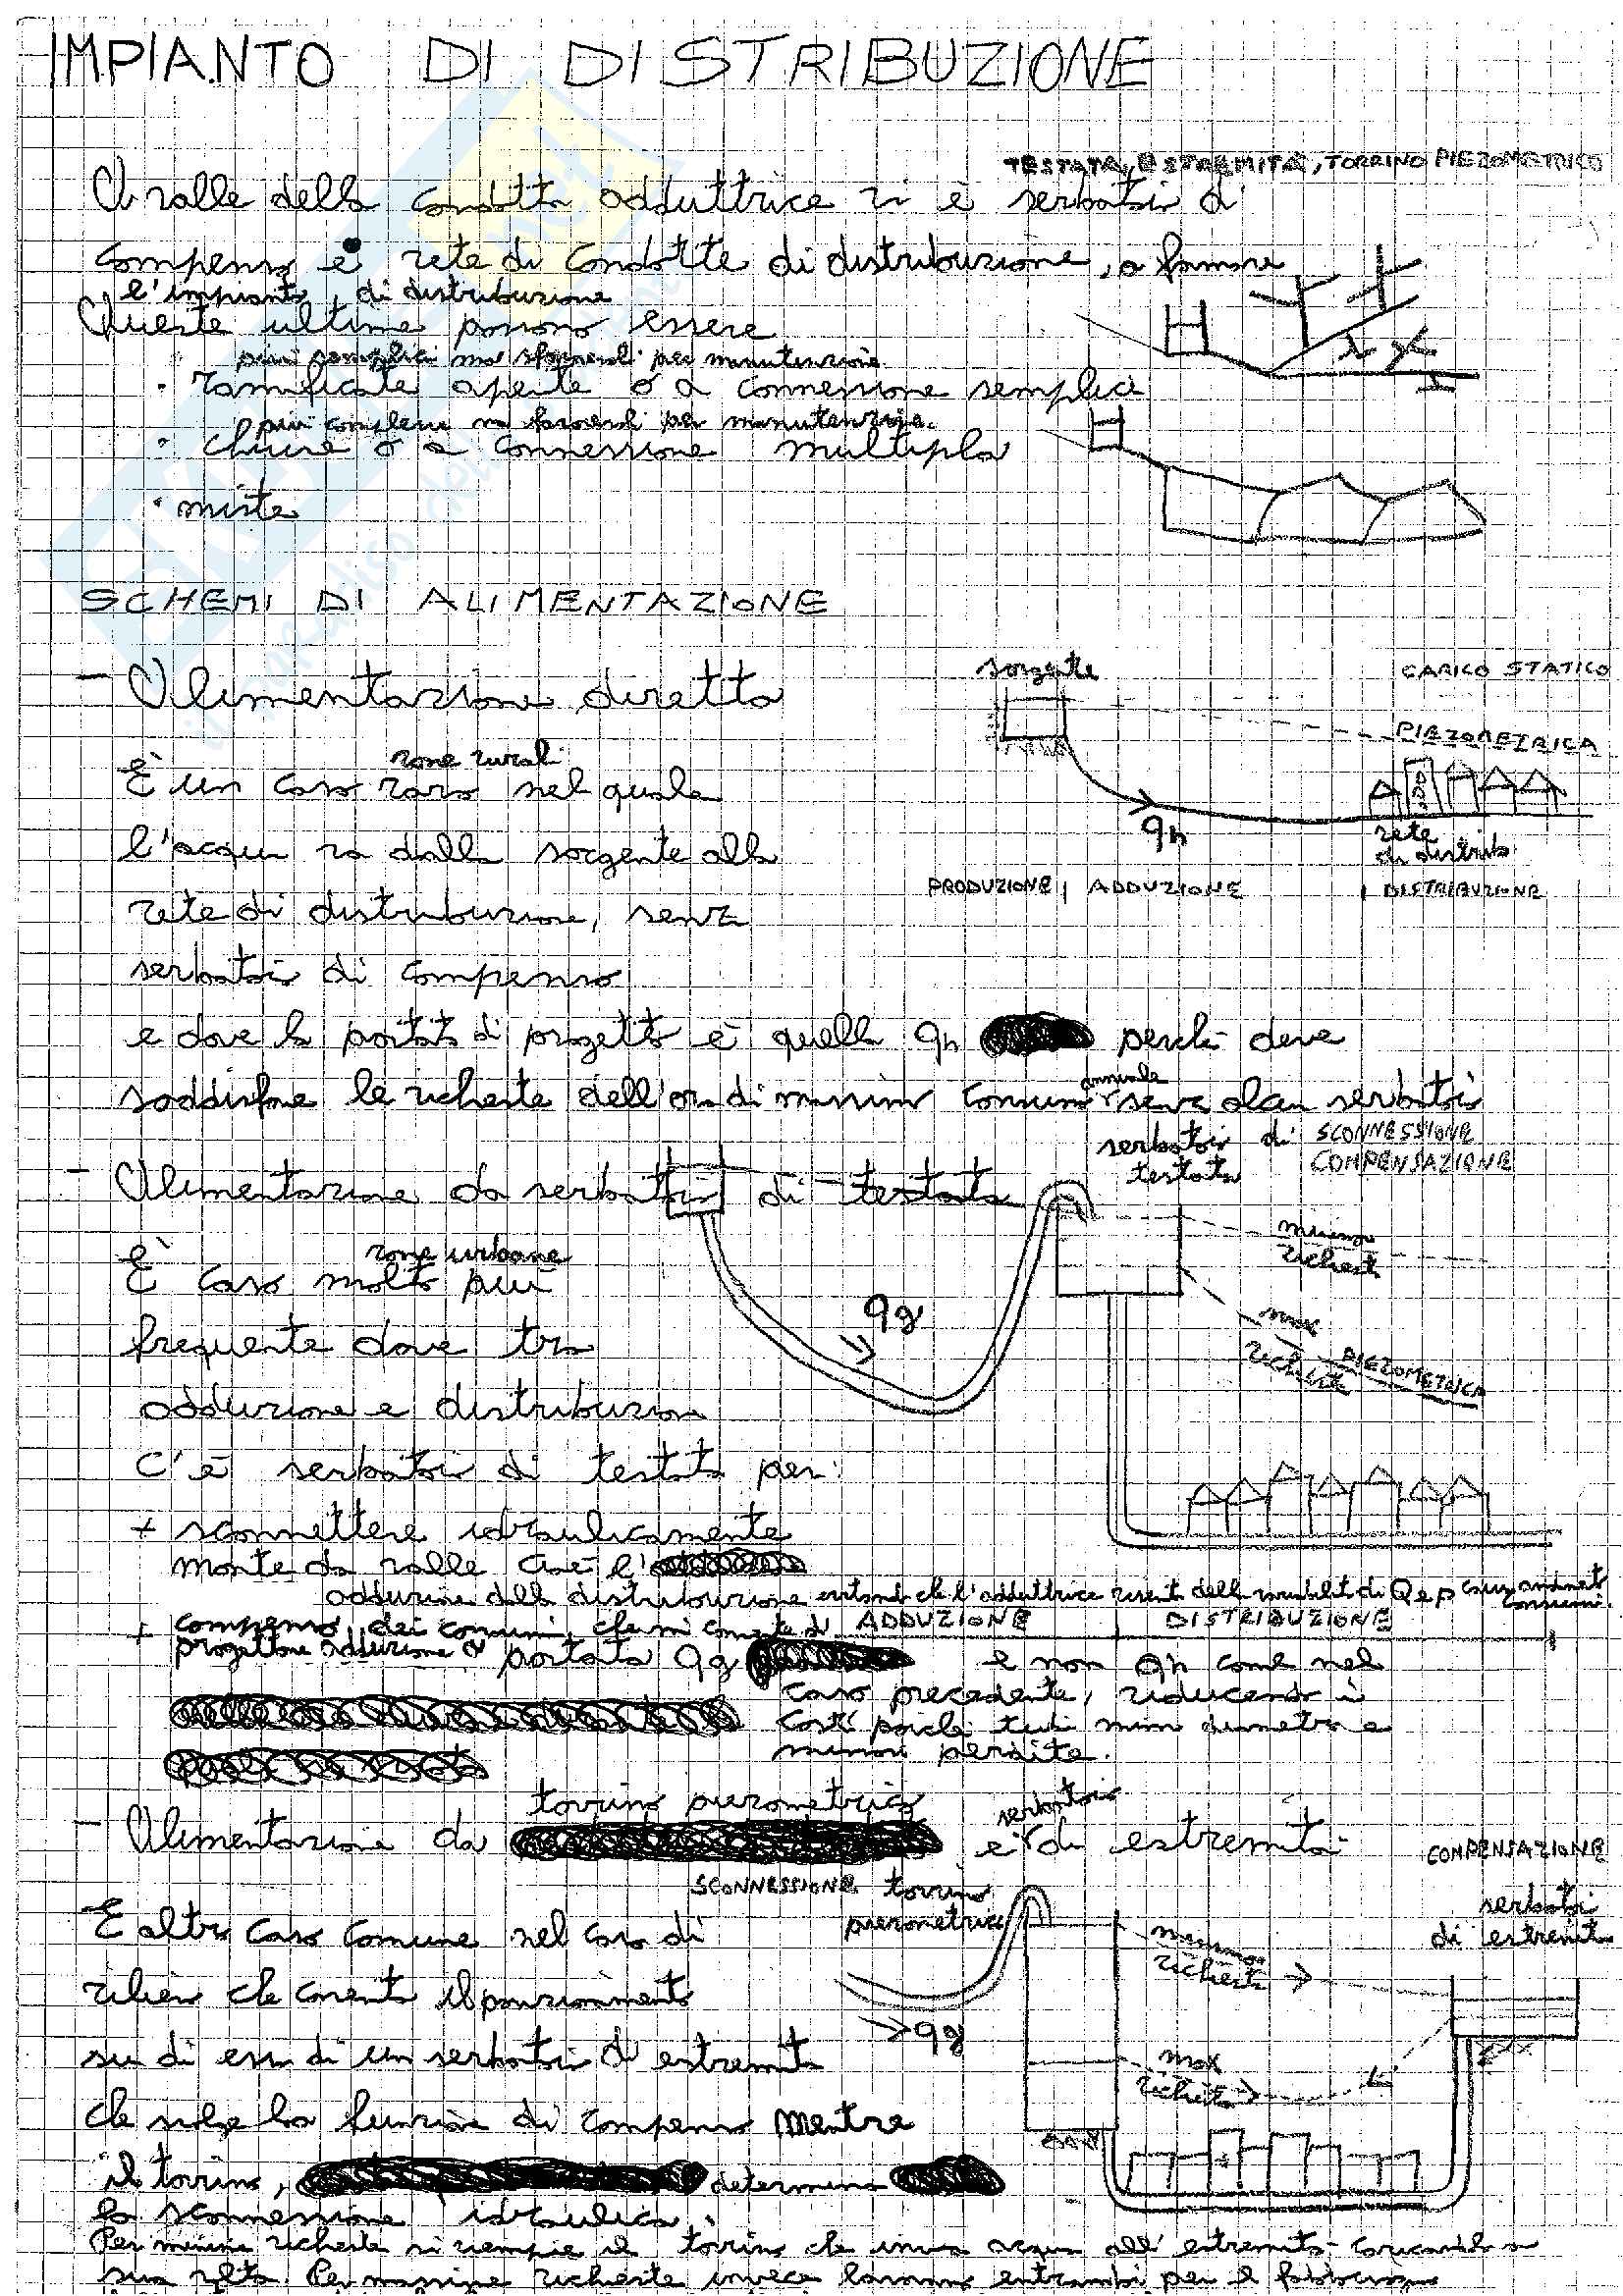 IMPIANTO DI DISTRIBUZIONE
TESTATA, ESTREMITÀ, TORRINO PIEZOMETRICO
A valle della condotta adduttrice vi è serbatoio di
compenso e rete di condotte di distribuzione, a formare
l'impianto di distribuzione
Queste ultime possono essere
più semplici ma sfavorevoli per manutenzione
· ramificate aperte o a connessione semplici
più complesse ma favorevoli per manutenzione
· chiuse o a connessione multipla
· miste
SCHEMI DI ALIMENTAZIONE
- Alimentazione diretta
sorgente
CARICO STATICO
PIEZOMETRICA
zone rurali
È un caso raro nel quale
l'acqua va dalla sorgente alla
qh
rete
di distrib
PRODUZIONE | ADDUZIONE | DISTRIBUZIONE
rete di distribuzione, senza
serbatoio di compenso
e dove la portata di progetto è quella qh perché deve
soddisfare le richieste dell'ora di massimo consumo annuale senza alcun serbatoio
serbatoio di SCONNESSIONE
testata COMPENSAZIONE
- Alimentazione da serbatoio di testata
minima
richiest
zone urbane
È caso molto più
qg
max
richieste PIEZOMETRICA
frequente dove tra
adduzione e distribuzion
c'è serbatoio di testata per:
+ sconnettere idraulicamente
monte da valle cioè l'
adduzione dalla distribuzione evitando che l'adduttrice risenta della variabilità di Q e p causa andamento
consumi.
+ compenso dei consumi, che mi consente di
ADDUZIONE | DISTRIBUZIONE
progettare adduzione a portata qg e non qh come nel
caso precedente, riducendo i
costi poiché tubi minor diametro e
minori perdite.
torrino piezometrico serbatoio
- Alimentazione da e di estremità
COMPENSAZIONE
SCONNESSIONE torrino
piezometrico
serbatoi
di estremit
È altro caso comune nel caso di
minima
richiesta
rilievi che consenta il posizionamento
qg
su di essi di un serbatoio di estremità
max
richiesta
che svolge la funzione di compenso mentre
il torrino, determina
la sconnessione idraulica.
Per minime richieste si riempie il torrino che invia acqua all'estremità caricandola a
sua volta. Per massime richieste invece lavorano entrambi per il fabbisogno